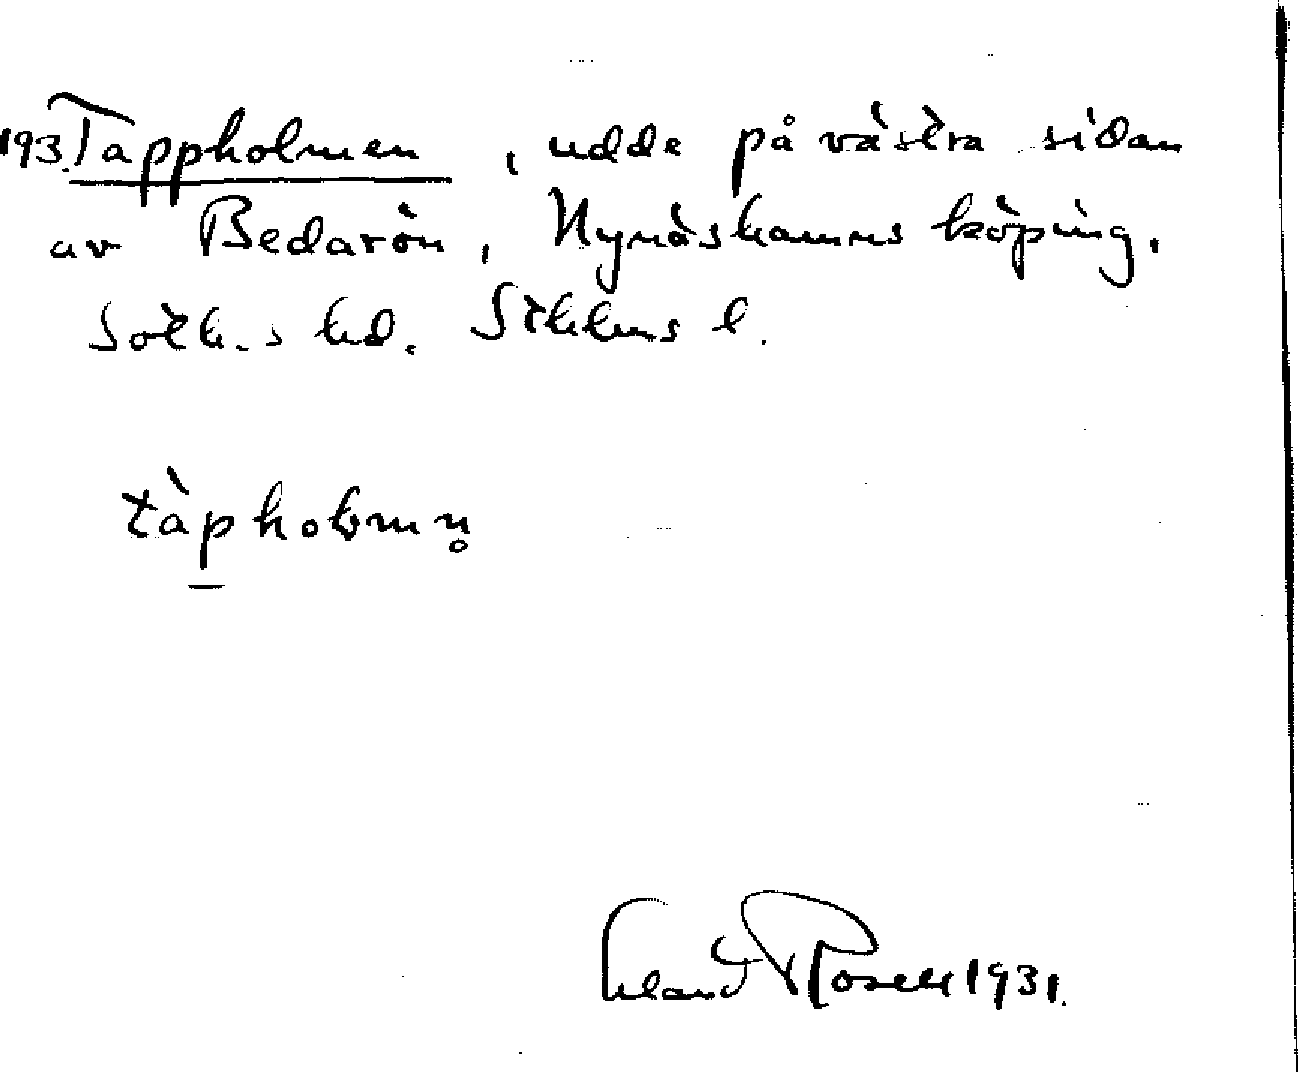 193. Tappholmen, udde på västra sidan
av Bedarön, Nynäshamns köping,
Soth.s hd. Sthlms l.
tàpholmn̥
Erland Rosell 1931.